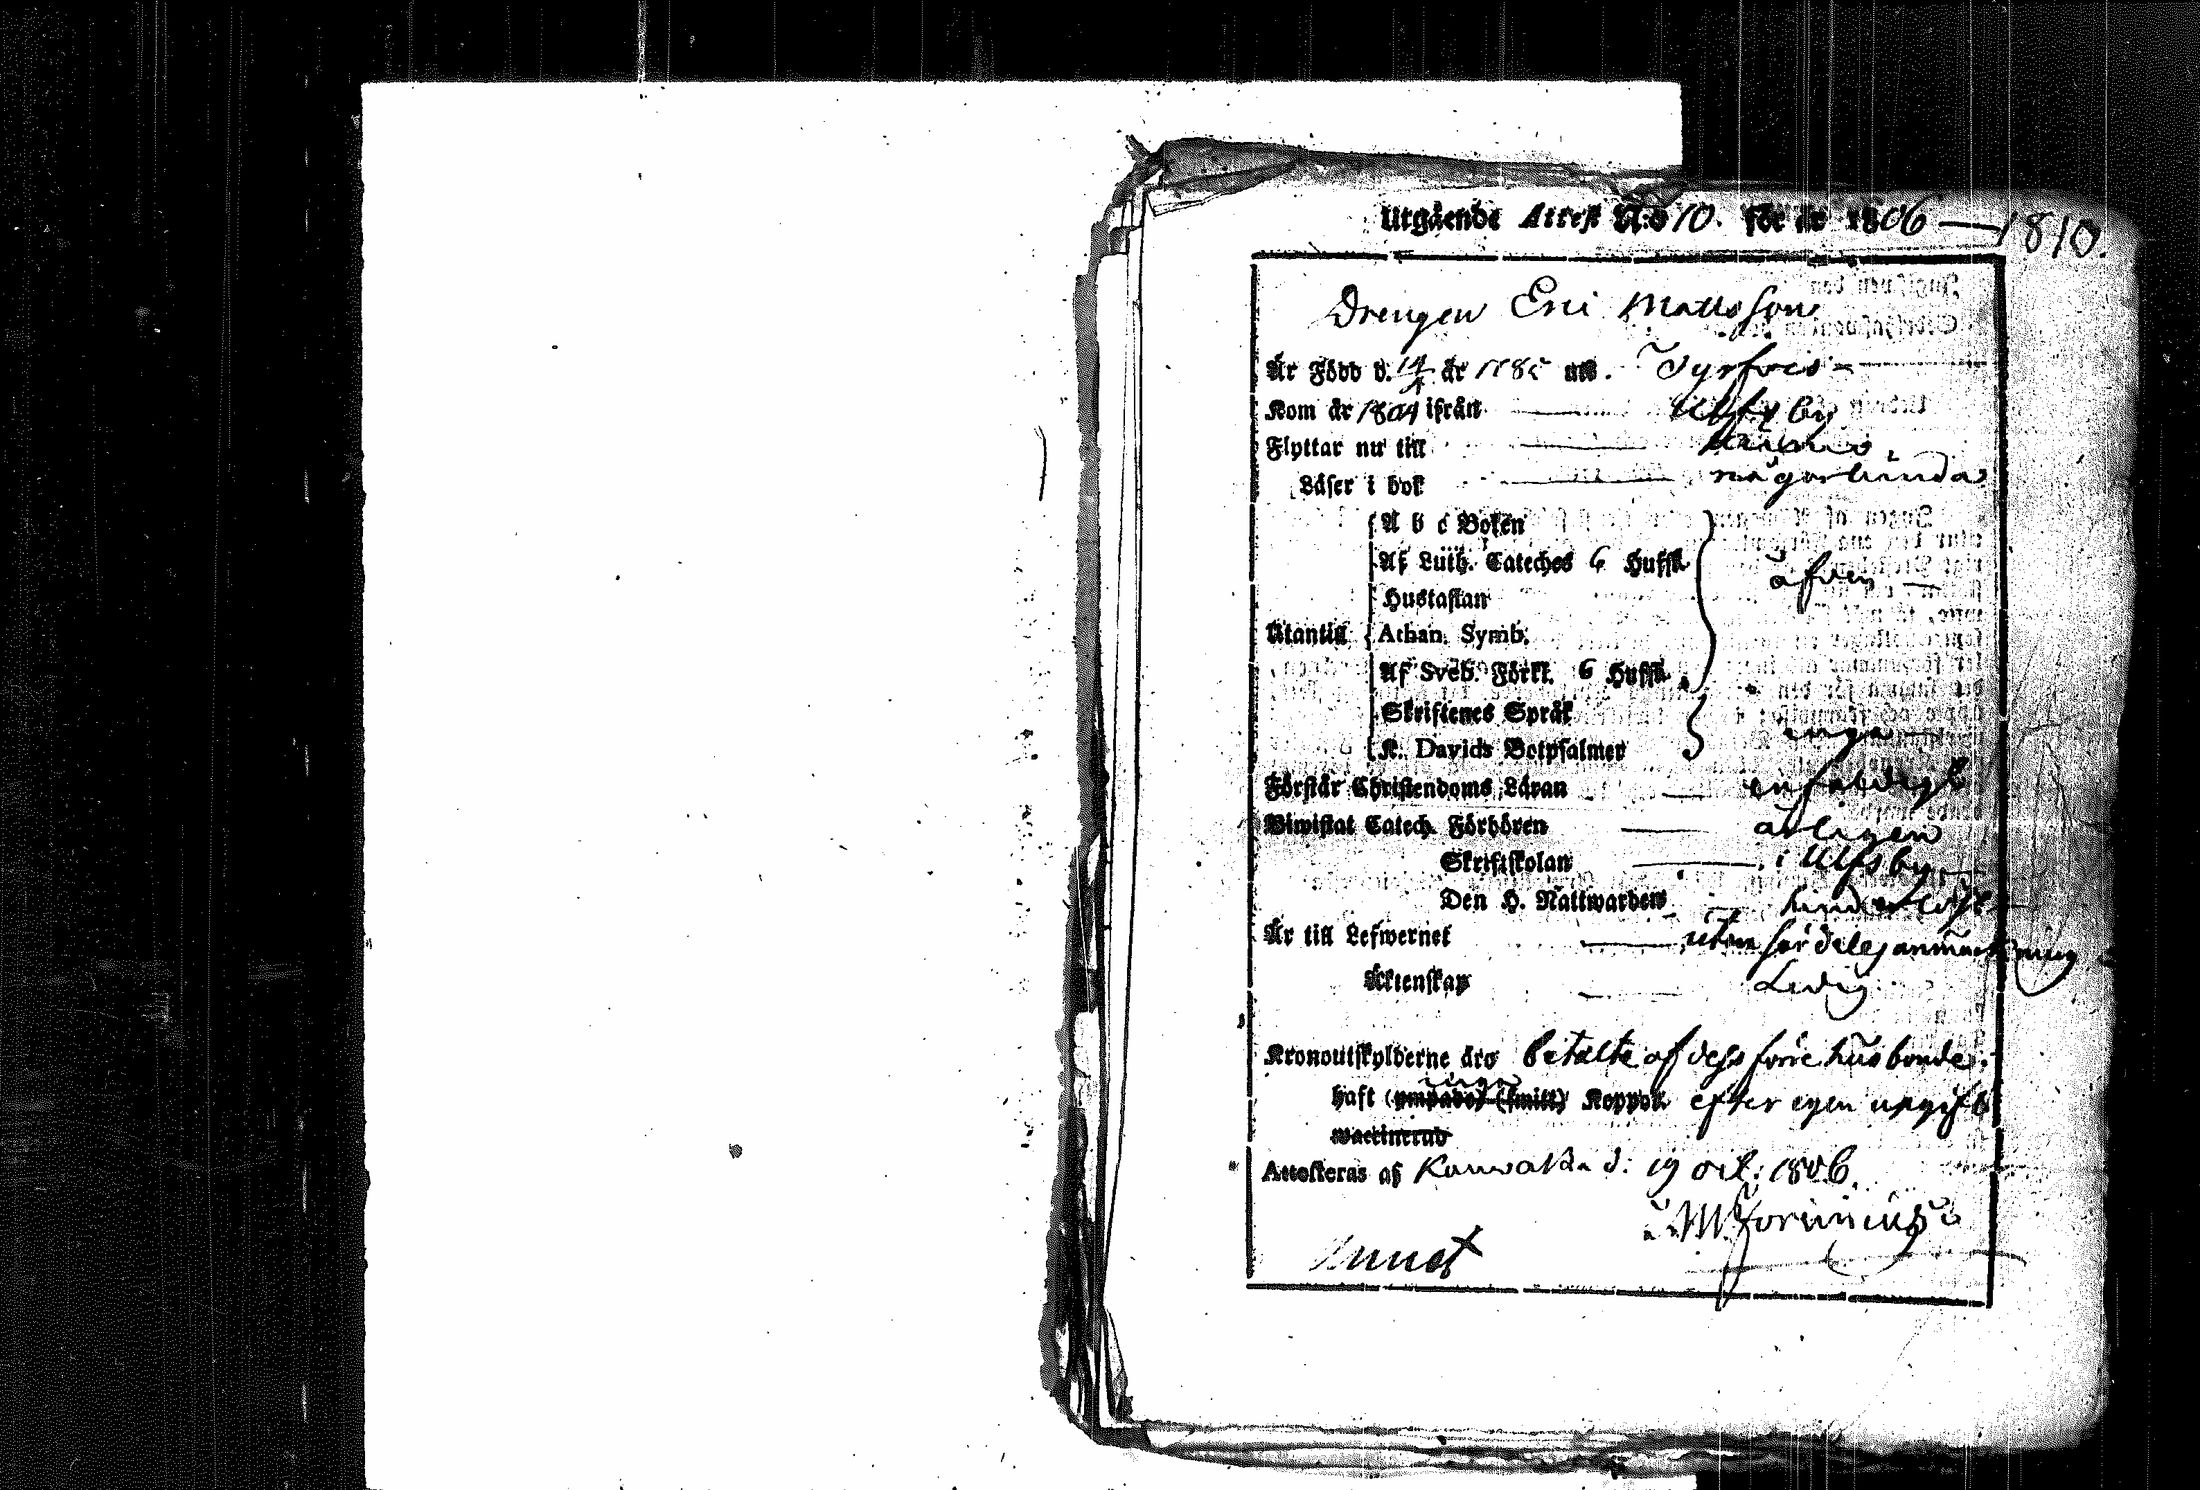 Utgående Attest N:o 10. för år 1806 — 1810.
Drengen Eric Mattsson
Är Född d. 14 år 178 uti. Tyrfvis
Kom år 1804 ifrån Ulfsby
Flyttar nu till
Läser i bok någorlunda
A b c Boken
Af Luth. Cateches 6 Hufst. äfven
Hustaflan
Utantill Athan. Symb.
Af Sveb. Förkl. 6 Hufst.
Skriftenes Språk
K. Davids Botpsalmer inga
Förstår Christendoms Läran enfaldigt
Biwistat Catech. Förhören årligen
Skriftskolan i Ulfsby
Den H. Nattwarden hinderlöst
Är till Lefwernet utan särdeles anmärkning
Äktenskap Ledig
Kronoutskylderne äro betalte af dess förre husbonde.
inga
haft (ympade) (smitt) Koppor efter egen upgift
waccinerad
Attesteras af d. 19 oct: 1806.